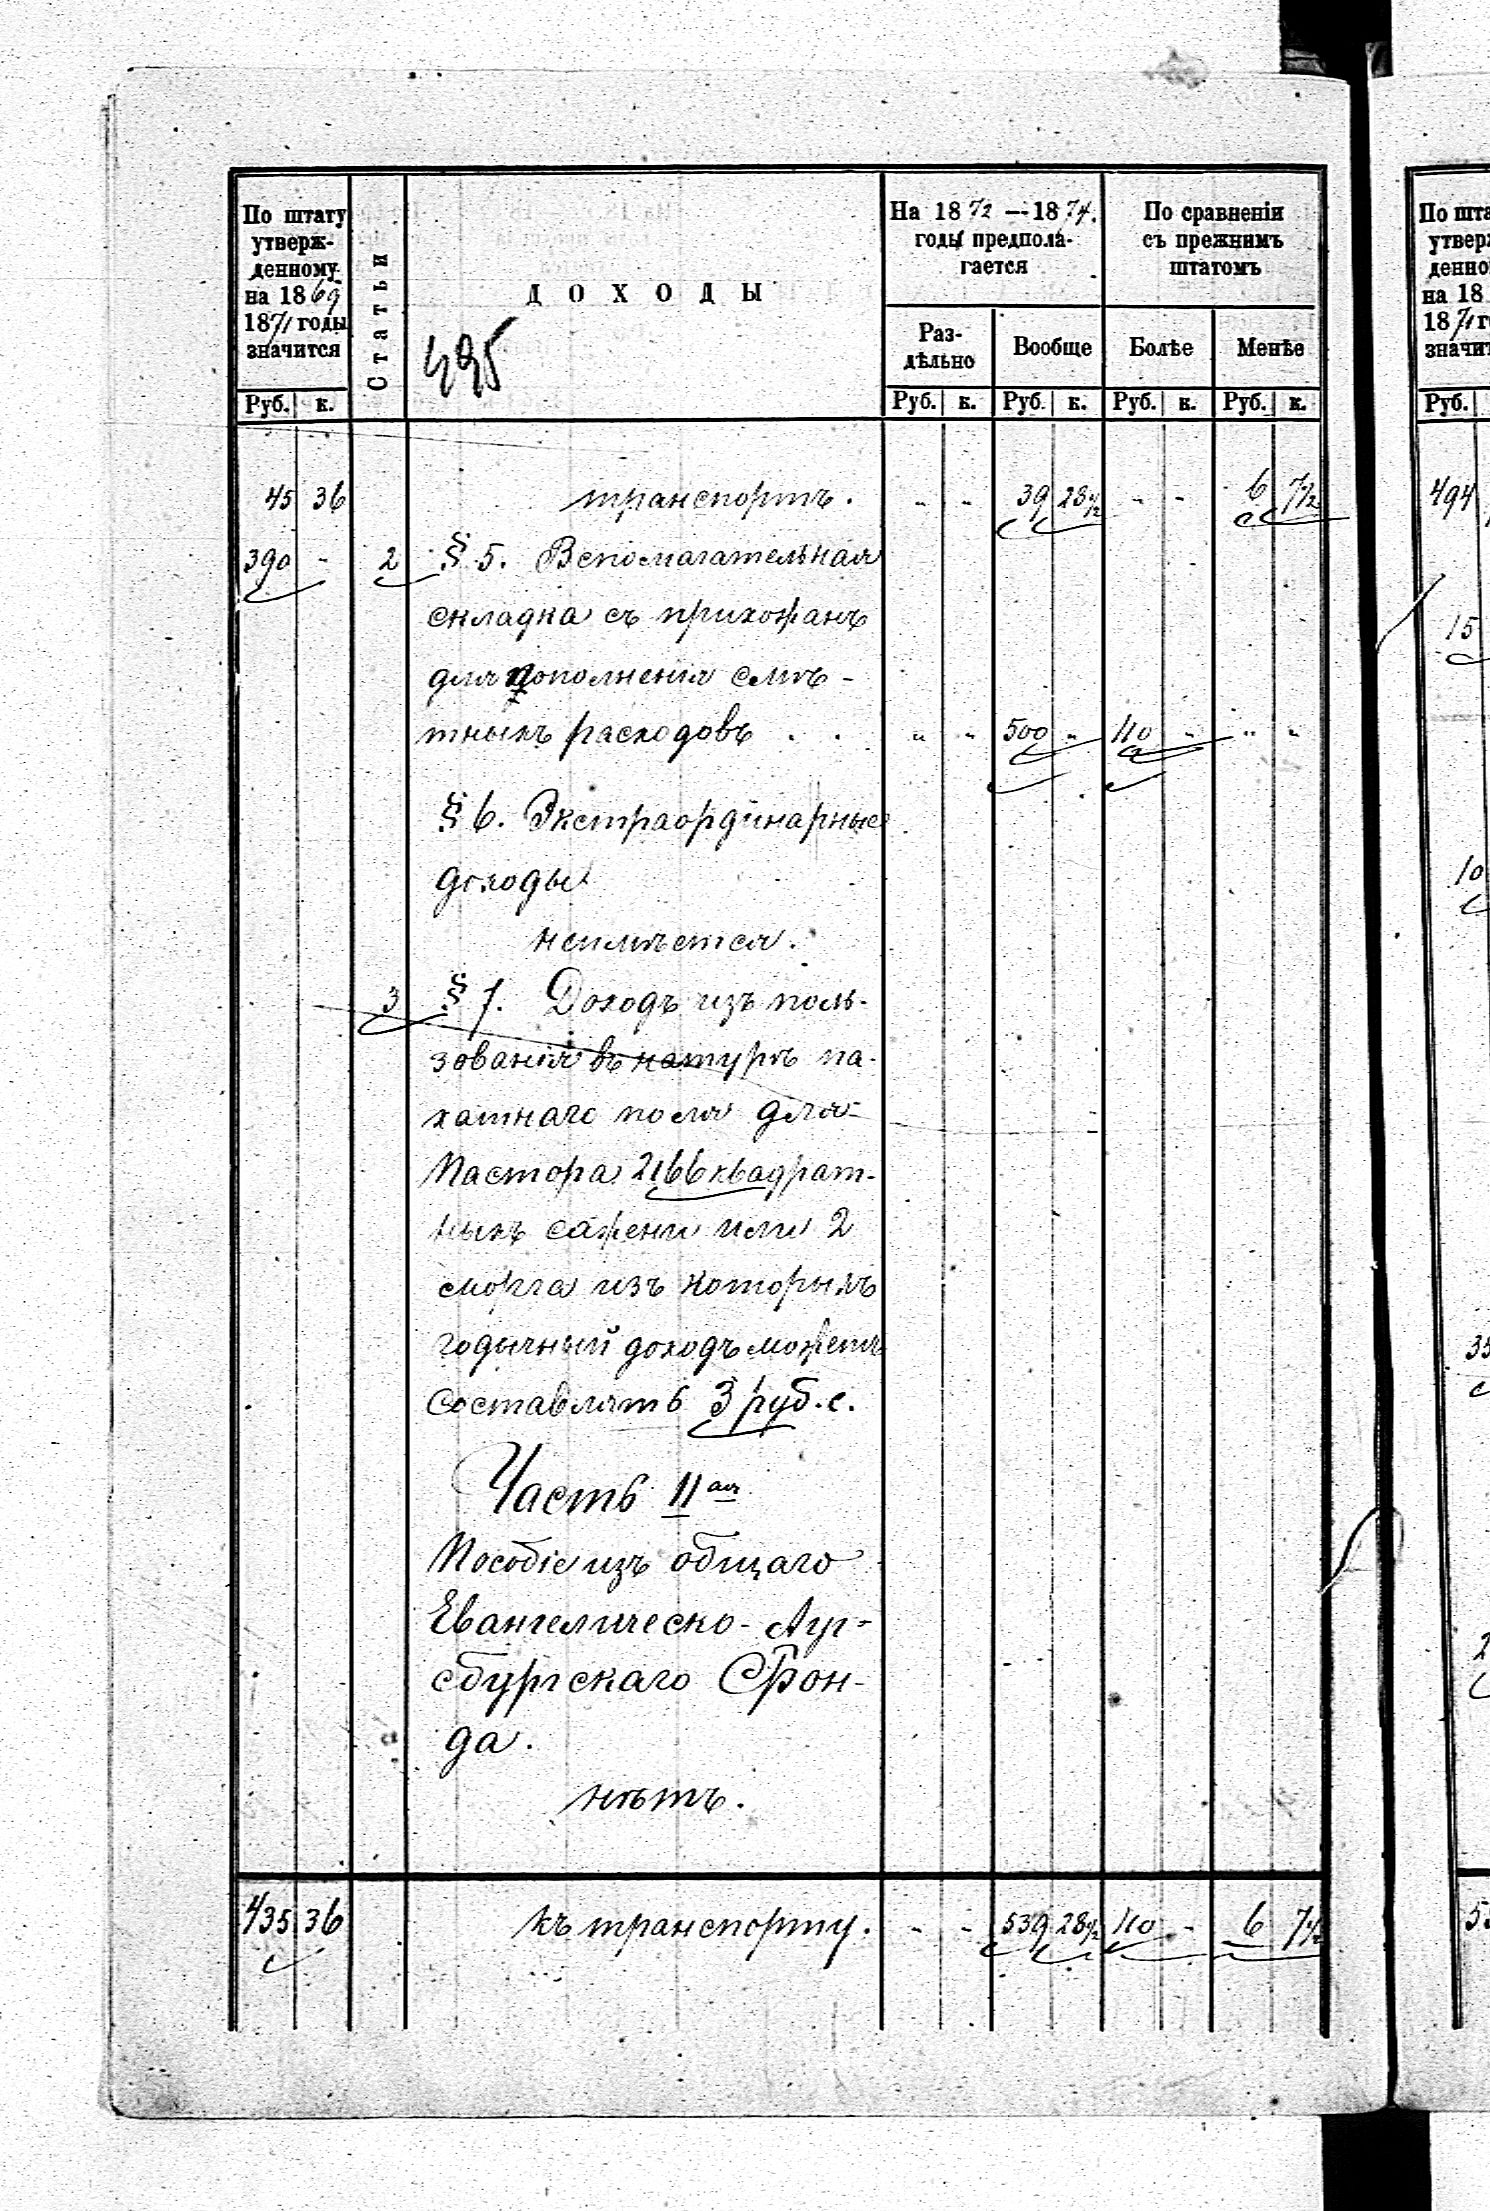 По штату
утверж-
денному
на 1869
1871 годы
значится
Руб. к.
Статьи
ДОХОДЫ
495
На 1872 — 1874.
годы предпола-
гается
Раз-
дѣльно
Вообще
Руб. к. Руб. к.
По сравненіи
съ прежнимъ
штатомъ
Болѣе Менѣе
Руб. к. Руб. к.
45 36 транспортъ. " " 39 28 1/2 " " 6 7 1/2
390 - 2 § 5. Вспомагательная
складка съ прихожанъ
для дополненія смѣ-
тныхъ расходовъ . . " " 500 " 110 " " "
§ 6. Экстраординарные
доходы
неимѣется.
3 § 7. Доходъ изъ поль-
зованія въ натурѣ па-
хатнаго поля для
Пастора 2166 квадрат-
ныхъ сажени или 2
морга изъ которыхъ
годычный доходъ можетъ
составлять 3 руб. с.
Часть II ая
Пособіе изъ общаго
Евангелическо-Ауг-
сбургскаго Фон-
да.
нѣтъ.
435 36 къ транспорту. " " 539 28 1/2 110 - 6 7 1/2
По шта
утверж
денно
на 18
1871 г
значит
Руб.
494
15
10
35
2